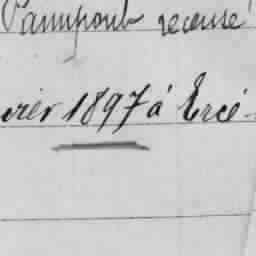 Paimpont recensé
vrier 1897 à Ercé-